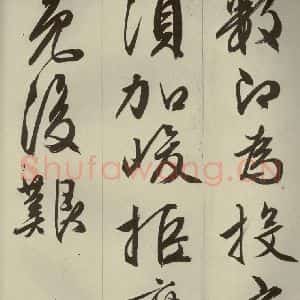 數即為投
須加峻拒庶
免後艱
Shufawang.CN